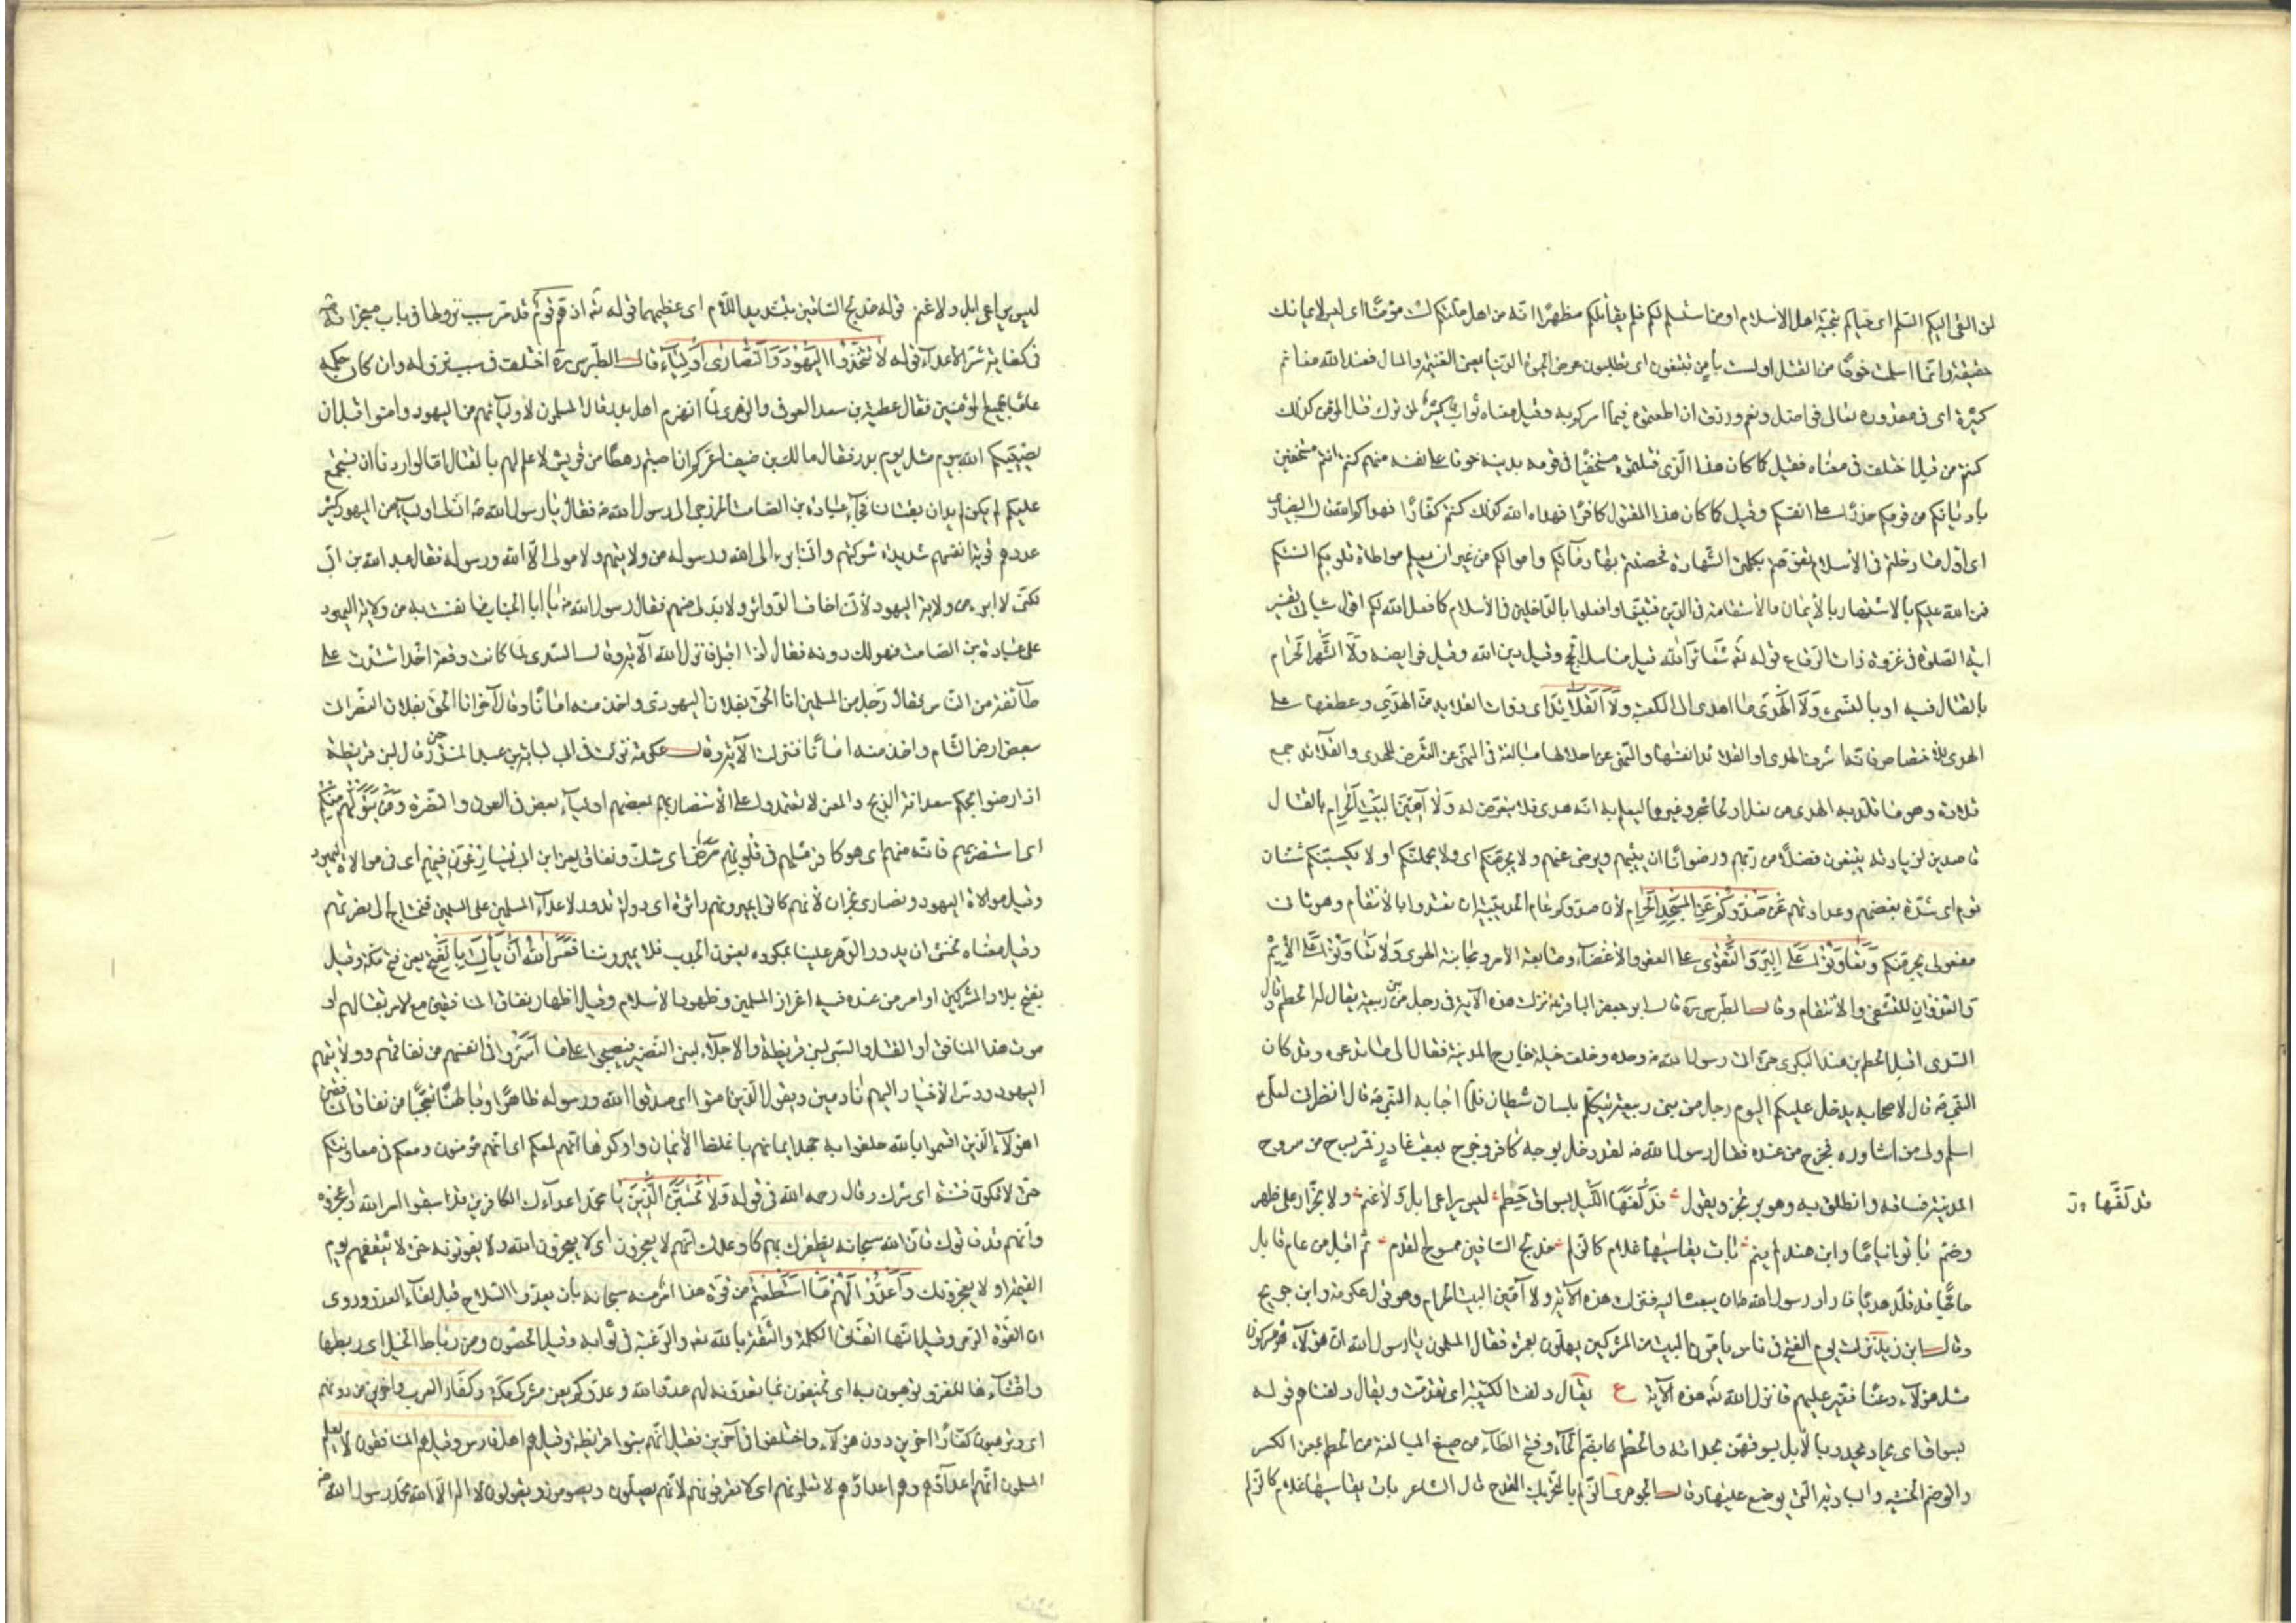 لمن القى اليكم السلم اى حياكم بتحية اهل الاسلام او من استسلم لكم فلم يقاتلكم مظهرا انه من اهل ملتكم لست مؤمنا اى ليس لايمانك
حقيقة وانما اسلمت خوفا من القتل او لست بامن تبتغون اى تطلبون عرض الحيوة الدنيا يعنى الغنيمة والمال فعند الله مغانم
كثيرة اى فى مقدوره تعالى فواضل ونعم ورزق ان اطعتموه فيما امركم به وقيل معناه ثواب كثير لمن ترك قتل المؤمن كذلك
كنتم من قبل اختلف فى معناه فقيل كما كان هذا الذى قتلتموه مستخفيا فى قومه بدينه خوفا على نفسه منهم كنتم انتم مستخفين
باديانكم من قومكم حذرا على انفسكم وقيل كما كان هذا المقتول كافرا فهداه الله كذلك كنتم كفارا فهداكم الله وقال البيضاوى
اى اول ما دخلتم فى الاسلام تفوهتم بكلمتى الشهادة فحصنتم بها دمآئكم واموالكم من غير ان يعلم مواطاة قلوبكم السنتكم
فمن الله عليكم بالاشتهار بالايمان والاستقامة فى الدين فتبينوا وافعلوا بالداخلين فى الاسلام كما فعل الله بكم اقول سياتى تفسير
اية الصلوة فى غزوة ذات الرقاع قوله تعالى شعائر الله قيل مناسك الحج وقيل دين الله وقيل فرايضه ولا الشهر الحرام
بالقتال فيه او بالنسىء ولا الهدى ما اهدى الى الكعبة ولا القلائد اى ذوات القلايد من الهدى وعطفها على
الهدى للاختصاص فانها اشرف الهدى او القلائد انفسها والنهى عن احلالها مبالغة فى النهى عن التعرض للهدى والقلآئد جمع
قلادة وهو ما قلد به الهدى من نعل او لحاء شجر وغيرهما ليعلم به انه هدى فلا يتعرض له ولا آمين البيت الحرام بالقتال
قاصدين لزيارته يبتغون فضلا من ربهم ورضوانا ان يثيبهم ويرضى عنهم ولا يجرمنكم اى ولا يحملنكم او لا يكسبنكم شنئان
قوم اى شدة بغضهم وعداوتهم عن صدوكم عن المسجد الحرام لان صدوكم عام الحديبية ان تعتدوا بالانتقام وهو ثانى
مفعولى يجرمنكم وتعاونوا على البر والتقوى على العفو والاغضآء ومتابعة الامر ومجانبة الهوى ولا تعاونوا على الاثم
والعدوان للتشفى والانتقام وقال الطبرسى ره قال ابو جعفر الباقر نزلت هذه الآية فى رجل من بنى ربيعة يقال له الحطم وقال
السدى اقبل الحطم بن هند البكرى حتى اتى رسول الله ص وحده وخلف خيله خارج المدينة فقال الى ما تدعو وقد كان
النبى ص قال لاصحابه يدخل عليكم اليوم رجل من بنى ربيعة يتكلم بلسان شيطان فلما اجابه النبى ص قال انظرنى لعلى
اسلم ولى من اشاوره فخرج من عنده فقال رسول الله ص لقد دخل بوجه كافر وخرج بعقب غادر فمر بسرح من سروح
المدينة فساقه وانطلق به وهو يرتجز ويقول قد لفها الليل بسواق حطم ليس براعى ابل ولا غنم ولا بجزار على ظهر
قد لفها
وضم باتوا نياما وابن هند لم ينم بات يقاسيها غلام كالزلم خدلج الساقين ممسوح القدم ثم اقبل من عام قابل
حاجا قد قلد هديا فاراد رسول الله ص ان يبعث اليه فنزلت هذه الآية ولا آمين البيت الحرام وهو قول عكرمة وابن جريح
وقال ابن زيد نزلت يوم الفتح فى ناس يامون البيت من المشركين يهلون بعمرة فقال المسلمون يا رسول الله ان هؤلآء مشركون
مثل هؤلآء دعنا نغير عليهم فانزل الله تعالى هذه الآية ع يقال دلفت الكتيبة اى تقدمت ويقال دلفناهم قوله
بسواق اى بحاد يحدو بالابل يسوقهن بحدائه والحطم كما بضم الحآء وفتح الطآء من صيغ المبالغة من الحطم بمعنى الكسر
والوضم الخشبة والبادية التى يوضع عليها وقال الجوهرى الزلم بالتحريك القدح قال الشاعر بات يقاسيها غلام كالزلم
ليس براعى ابل ولا غنم قوله خدلج الساقين بتشديد اللام اى عظيمهما قوله تعالى اذ هم قوم قد مر سبب نزولها فى باب معجزاته ص
فى كفاية شر الاعدآء قوله لا تتخذوا اليهود والنصارى اوليآء قال الطبرسى ره اختلف فى سبب نزوله وان كان حكمه
عاما لجميع المؤمنين فقال عطية بن سعد العوفى والزهرى لما انهزم اهل بدر قال المسلمون لاوليآئهم من اليهود وامنوا قبل ان
يصيبكم الله بيوم مثل يوم بدر فقال مالك بن ضيف اغركم ان اصبتم رهطا من قريش لا علم لهم بالقتال اما لو اردنا ان نستجمع
عليكم لم يكن لم يدان بقتالنا فجآء عبادة بن الصامت الخزرجى الى رسول الله ص فقال يا رسول الله ص ان لى اوليآء من اليهود كثير
عددهم قوية انفسهم شديدة شوكتهم وانى ابرء الى الله ورسوله من ولايتهم ولا مولى الا الله ورسوله فقال عبد الله بن ابى
لكنى لا ابرء من ولاية اليهود لانى اخاف الدوائر ولا بد لى منهم فقال رسول الله ص يا ابا الحباب ما نفست به من ولاية اليهود
على عبادة بن الصامت فهو لك دونه فقال اذا اقبل فانزل الله الآية وقال السدى لما كانت وقعة احد اشتدت على
طآئفة من الناس فقال رجل من المسلمين انا الحق بفلان اليهودى واخذ منه امانا وقال آخر انا الحق بفلان النصرانى
ببعض ارض الشام واخذ منه امانا فنزلت الآية وقال عكرمة نزلت فى ابى لبابة بن عبد المنذر حين قال لبنى قريظة
اذا رضوا بحكم سعد انه الذبح والمعنى لا تعتمدوا على الاستنصار بهم بعضهم اوليآء بعض فى العون والنصرة ومن يتولهم منكم
اى استنصر بهم فانه منهم اى هو كافر مثلهم فى قلوبهم مرض اى شك ونفاق يعنى ابن ابى يسارعون فيهم اى فى موالاة اليهود
وقيل موالاة اليهود ونصارى نجران لانهم كانوا يميرونهم دائرة اى دولة تدور لاعدآء المسلمين على المسلمين فنحتاج الى نصرتهم
وقيل معناه نخشى ان يدور الدهر علينا بمكروه يعنون الجدب فلا يميروننا فعسى الله ان ياتى بالفتح يعنى فتح مكة وقيل
بفتح بلاد المشركين او امر من عنده فيه اعزاز المسلمين وظهور الاسلام وقيل اظهار نفاق المنافقين مع الامر بقتالهم او
موت هذا المنافق او القتل والسبى لبنى قريظة والاجلآء لبنى النضير فيصبحوا على ما اسروا فى انفسهم من نفاقهم وولايتهم
اليهود ودس الاخبار اليهم نادمين ويقول الذين امنوا اى صدقوا الله ورسوله ظاهرا وباطنا تعجبا من نفاق المنافقين
اهؤلآء الذين اقسموا بالله حلفوا به جهد ايمانهم باغلظ الايمان واوكدها انهم لمعكم اى انهم مؤمنون ومعكم فى معاونتكم
حتى لا تكون فتنة اى شرك وقال رحمه الله فى قوله ولا تحسبن الذين يا محمد اعداءك الكافرين قد سبقوا امر الله واعجزوه
وانهم قد فاتوك فان الله سبحانه يظفرك بهم كما وعدك انهم لا يعجزون اى لا يعجزون الله ولا يفوتونه حتى لا يثقفهم يوم
القيمة او لا يعجزونك واعدوا لهم ما استطعتم من قوة هذا امر منه سبحانه بان يعدوا السلاح قبل لقآء العدو وروى
ان القوة الرمى وقيل انها اتفاق الكلمة والثقة بالله تعالى والرغبة فى ثوابه وقيل الحصون ومن رباط الخيل اى ربطها
واقتنآءها للغزو ترهبون به اى تخيفون بما تعدونه لهم عدو الله وعدوكم يعنى مشركى مكة وكفار العرب واخرين من دونهم
اى وترهبون كفارا اخرين دون هؤلآء واختلفوا فى آخرين فقيل انهم بنوا قريظة وقيل هم اهل فارس وقيل هم المنافقون لا يعلم
المسلمون انهم اعدآؤهم وهم اعداؤهم لا تعلمونهم اى لا تعرفونهم لانهم يصلون ويصومون ويقولون لا اله الا الله محمد رسول الله ص